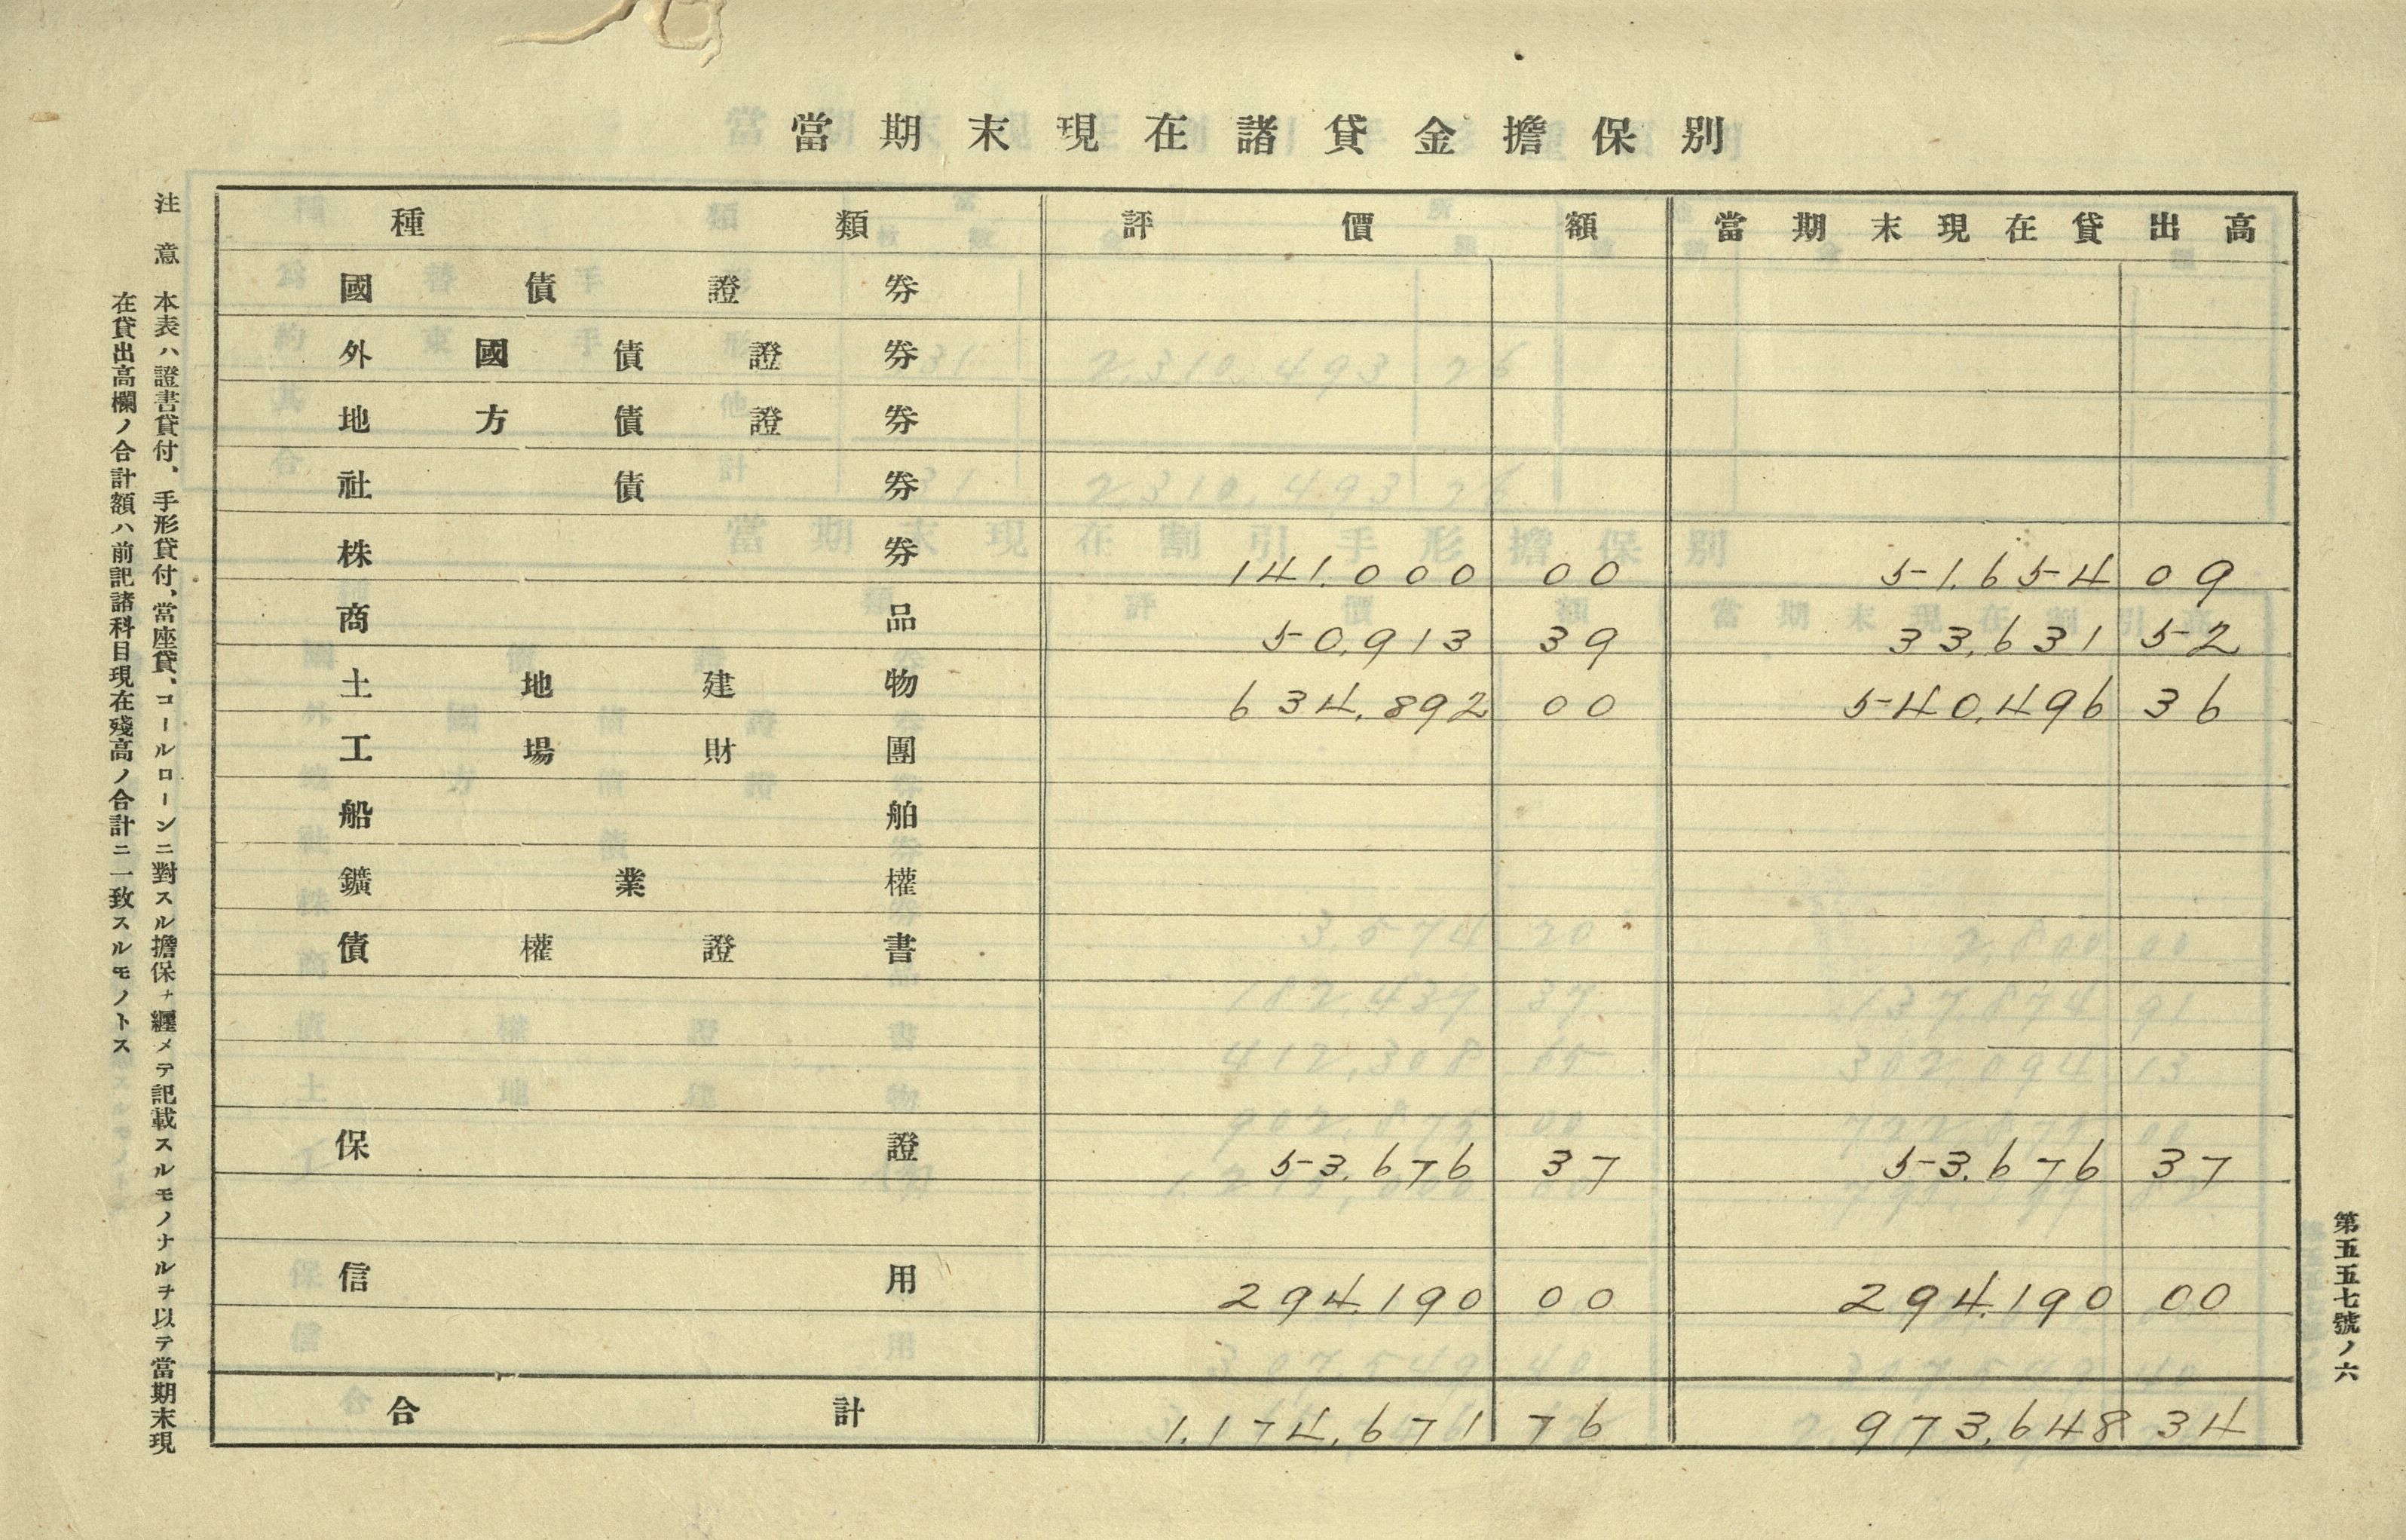 當期末現在諸貸金擔保別
種類 評價額 當期末現在貸出高
國債證券
外國債證券
地方債證券
社債券
株券 141,000 00 51,654 09
商品 50,913 39 33,631 52
土地建物 634,892 00 540,496 36
工場財團
船舶
鑛業權
債權證書
保證 53,676 37 53,676 37
信用 294,190 00 294,190 00
合計 1,174,671 76 973,648 34
注意 本表ハ證書貸付、手形貸付、當座貸、コールローンニ對スル擔保ヲ纒メテ記載スルモノナルヲ以テ當期末現
在貸出高欄ノ合計額ハ前記諸科目現在殘高ノ合計ニ一致スルモノトス
第五五七號ノ六